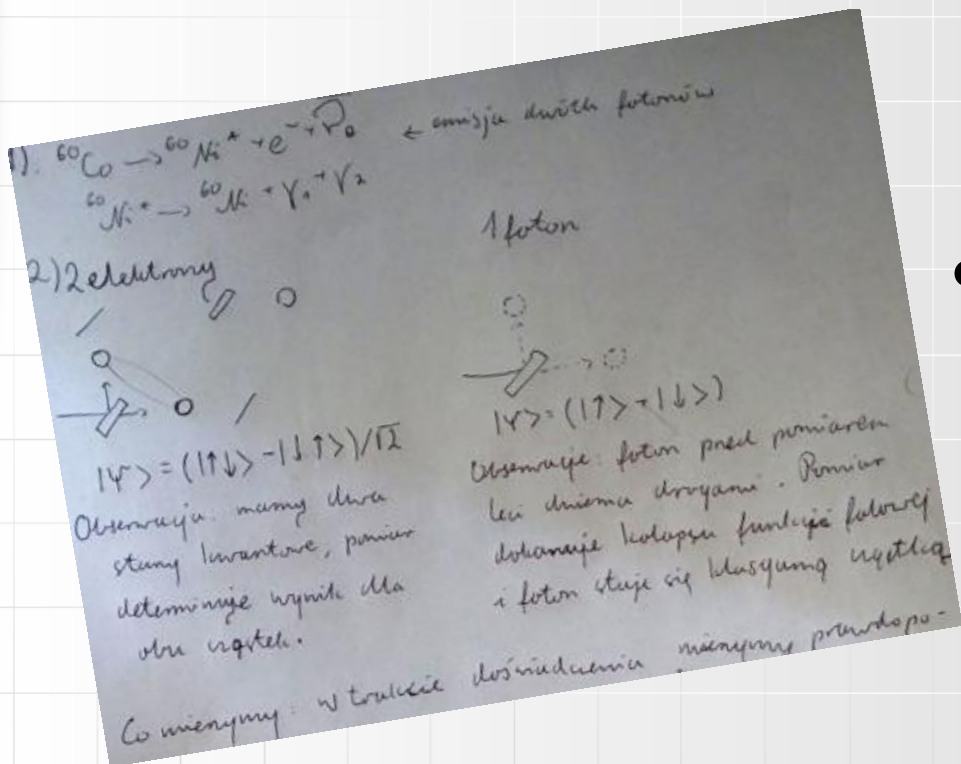 1). ⁶⁰Co → ⁶⁰Ni* + e⁻ + ν̅₀ ← emisja dwóch fotonów
⁶⁰Ni* → ⁶⁰Ni + γ₁ + γ₂
2) 2 elektrony
1 foton
|Ψ> = (|↑↓> - |↓↑>)/√2
Obserwacja: mamy dwa
stany kwantowe, pomiar
determinuje wynik dla
obu cząstek.
|Ψ> = (|↑> + |↓>)
Obserwacje: foton przed pomiarem
leci dwiema drogami. Pomiar
dokonuje kolapsu funkcji falowej
i foton staje się klasyczną cząstką
Co mierzymy: w trakcie doświadczenia mierzymy prawdopo-